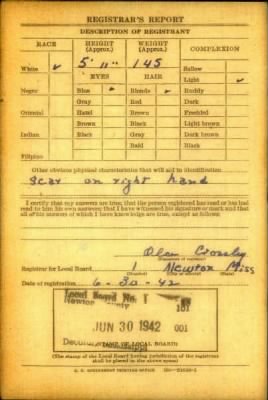 REGISTRAR'S REPORT
DESCRIPTION OF REGISTRANT
RACE HEIGHT (Approx.) WEIGHT (Approx.) COMPLEXION
5' 11" 145
White ✓ Sallow
EYES HAIR Light ✓
Negro Blue ✓ Blonde ✓ Ruddy
Gray Red Dark
Oriental Hazel Brown Freckled
Brown Black Light brown
Indian Black Gray Dark brown
Bald Black
Filipino
Other obvious physical characteristics that will aid in identification
Scar on right hand
I certify that my answers are true; that the person registered has read or has had
read to him his own answers; that I have witnessed his signature or mark and that
all of his answers of which I have knowledge are true, except as follows:
Olen Crossley
Registrar for Local Board 1 Newton Miss
Date of registration 6-30-42
Local Board No. 1
Newton County
JUN 30 1942 001
Decatur, Mississippi
(STAMP OF LOCAL BOARD)
(The stamp of the Local Board having jurisdiction of the registrant
shall be placed in the above space.)
U. S. GOVERNMENT PRINTING OFFICE